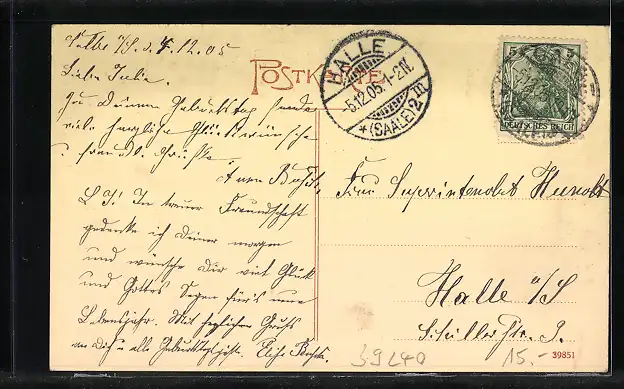 Calbe a/S. d. 4.12.05
Liebe Julie.
Zu Deinem Geburtstag sende
viele herzliche Glückwünsche
u. freundl. Grüße
L. J! In treuer Freundschaft
gedenke ich Deiner morgen
und wünsche Dir viel Glück
und Gottes Segen für's neue
Lebensjahr. Mit herzlichem Gruß
an Dich u. alle
POSTKARTE
HALLE
5.12.05. 1-2N.
*(SAALE)2
5
DEUTSCHES REICH
Frau Superintendent
Halle a/S
Schillerstr.
39240
15.-
39851